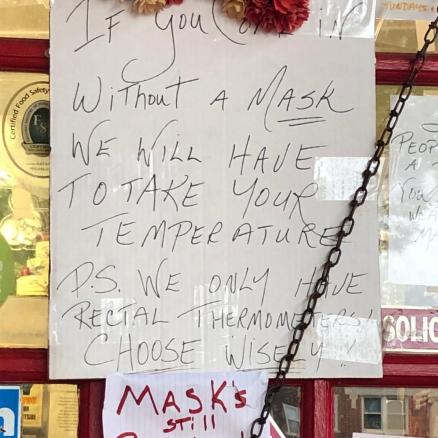 IF YOU COME IN
WITHOUT A MASK
WE WILL HAVE
TO TAKE YOUR
TEMPERATURE
P.S. WE ONLY HAVE
RECTAL THERMOMETERS!
CHOOSE WISELY!
MASK's
STill
Certified Food Safety
SUNDAYS
PEOP
A
YOU
SOLIC